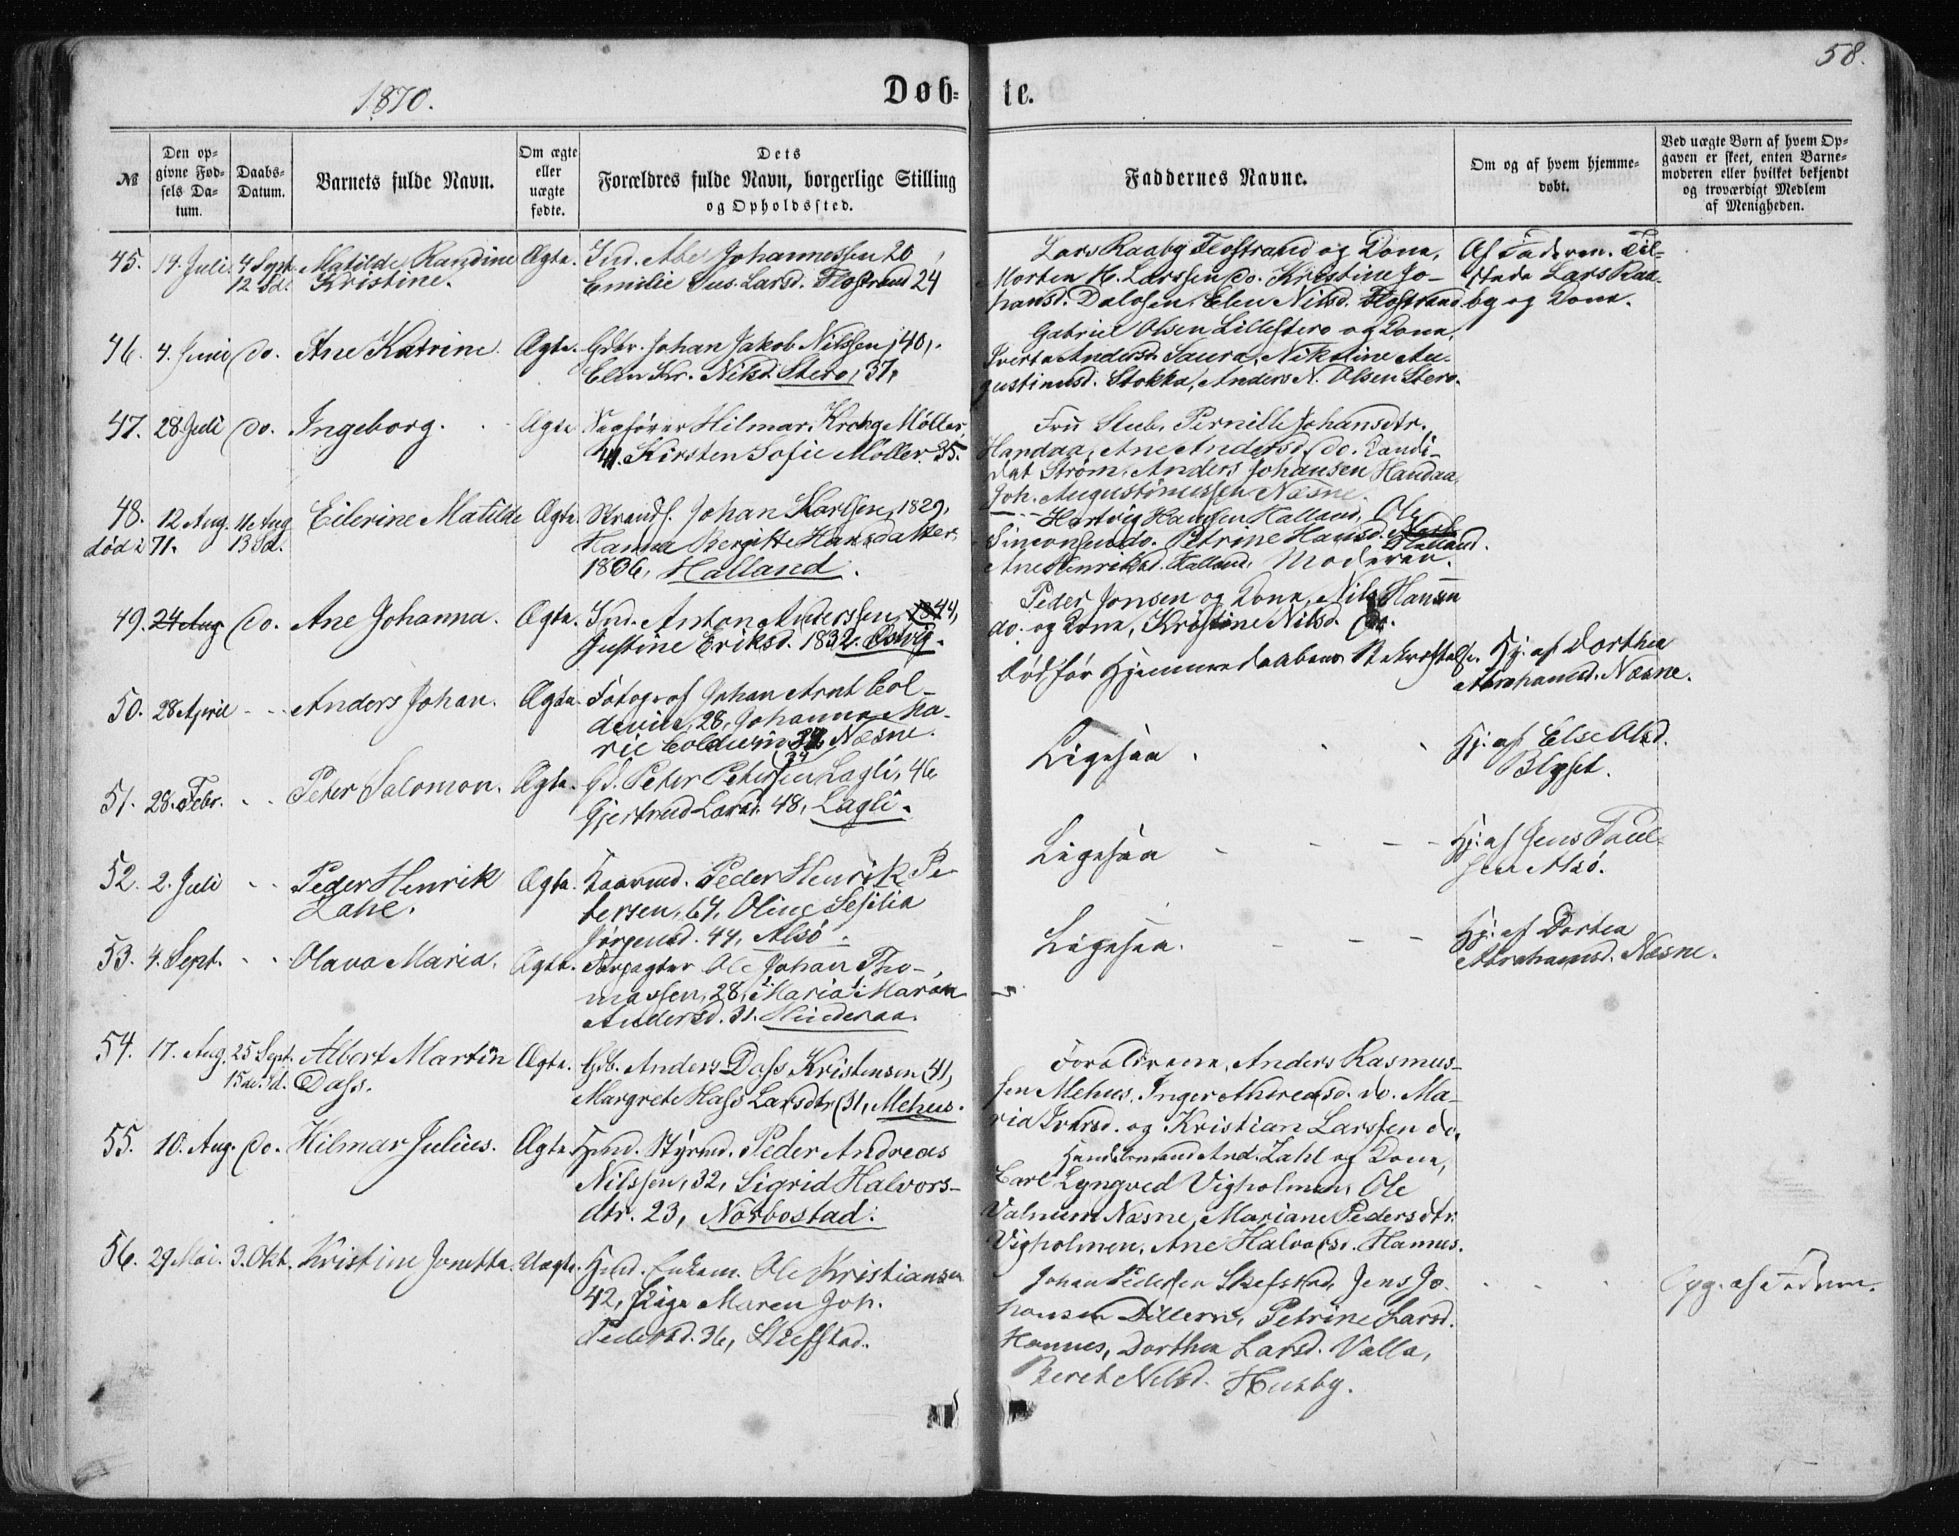 58.
1870.
Døb= te.
№
Den op=
givne Fød=
sels Da=
tum.
Daabs=
Datum.
Barnets fulde Navn.
Om ægte
eller
uægte
fødte.
Dets
Forældres fulde Navn, borgerlige Stilling
og Opholdssted.
Faddernes Navne.
Om og af hvem hjemme=
døbt.
Ved uægte Børn af hvem Op=
gaven er skeet, enten Barne=
moderen eller hvilket bekjendt
og troværdigt Medlem
af Menigheden.
45. 14. Juli. 4 Sept. Matilde Randine Ægte. Ind. Abel Johannessen 20,
12 Sd. Kristine. Emilie Sus. Larsd. Flostrand 24
Lars Raaby Flostrand og Kone,
Morten H. Larssen do. Kristine Jo-
hansd. Dalosen, Elen Nilsd. Flostrand
Af Faderen. Til-
stede Lars Raa-
by og Kone.
46. 4. Juni do. Ane Katrine. Ægte. Gdbr. Johan Jakob Nilssen, 40,
Ellen Kr. Nilsd. Stero, 37,
Gabriel Olsen Lillestero og Kone,
Iverta Andersd. Saura, Nikoline Au-
gustinusd. Stokka, Anders N. Olsen Stero.
47. 28 Juli do. Ingeborg. Ægte Sagfører Hilmar Krohg Møller,
41. Kirsten Sofie Møller. 35.
Fru Stub, Pernille Johansdtr.
Handaa, Ane Andersd. do. Kandi-
dat Strøm, Anders Johansen Handaa,
Joh. Augustinussen Næsne.
48. 12 Aug. 14 Aug Eilerine Matilde Ægte. Strands. Johan Karlsen, 1829,
død i 71. 13 Sd. Hanna Bergitte Hansdatter
1836, Halland.
Hartvig Hansen Halland, Ole
Simonsen do. Petrine Hansd.
Halland.
Ane Henriksd. Halland, Moderen.
49. 24 Aug do. Ane Johanna. Ægte. Ind. Anton Anderssen, 1844,
Justine Eriksd. 1832. Østvig.
Peder Jonsen og Kone, Nils Hansen
do. og Kone, Kristine Nilsd. do.
50. 28 April - - Anders Johan. Ægte. Fotograf Johan Arnt Col-
devin, 28, Johanna Ma-
rie Coldevin 34, Næsne.
Død før Hjemmedaabens Bekræftelse. Hj. af Dorthea
Abrahamsd. Næsne.
51. 28. Febr. - - Peter Salomon. Ægte. Gd. Peter Peterssen Lagli, 46
Gjertrud Larsd. 48, Lagli.
Ligesaa
Hj. af Else Olsd.
Blyset.
52. 2. Juli - - Peder Henrik Ægte. Huusmd. Peder Henrik Pe-
Zahl. tersen, 67, Oline Sesilia
Jørgensd. 44, Alsö.
Ligesaa
Hj. af Jens Paul-
sen Alsö.
53. 4. Sept. - - Olava Maria. Ægte. Forpagter Ole Johan Tho-
massen, 28, Maria Maren
Andersd. 31. Hinderaa.
Ligesaa.
Hj. af Dortea
Abrahamsd. Næsne.
54. 17. Aug. 25 Sept. Albert Martin Ægte. Gb. Anders Dass Kristensen (41,
15de Sd. Dass. Margrete Hass Larsdtr (31, Mehus.
Forældrene, Anders Rasmus-
sen Mehus, Inger Andreasd. do. Ma-
ria Ivarsd. og Kristian Larssen do.
55. 10. Aug. do. Hilmar Julius. Ægte. Hmd. Styrmd. Peder Andreas
Nilssen, 32, Sigrid Halvors-
dtr. 23, Norbostad.
Handelsmand And. Zahl og Kone,
Carl Lyngved Vigholmen, Ole
Valnum Næsne, Mariane Pedersdtr
Vigholmen, Ane Halvorsd. Hamnes.
56. 29 Mai. 3. Okt. Kristine Jonetta. Uægte. Hmd. Enkem. Ole Kristiansen
42, Pige Maren Joh.
Pedersd. 36, Skefstad.
Johan Pedersen Skefstad, Jens Jo-
hansen Dillern, Petrine Larsd.
Hamnes, Dorthea Larsd. Valla,
Beret Nilsd. Husby.
Opg. af Faderen.